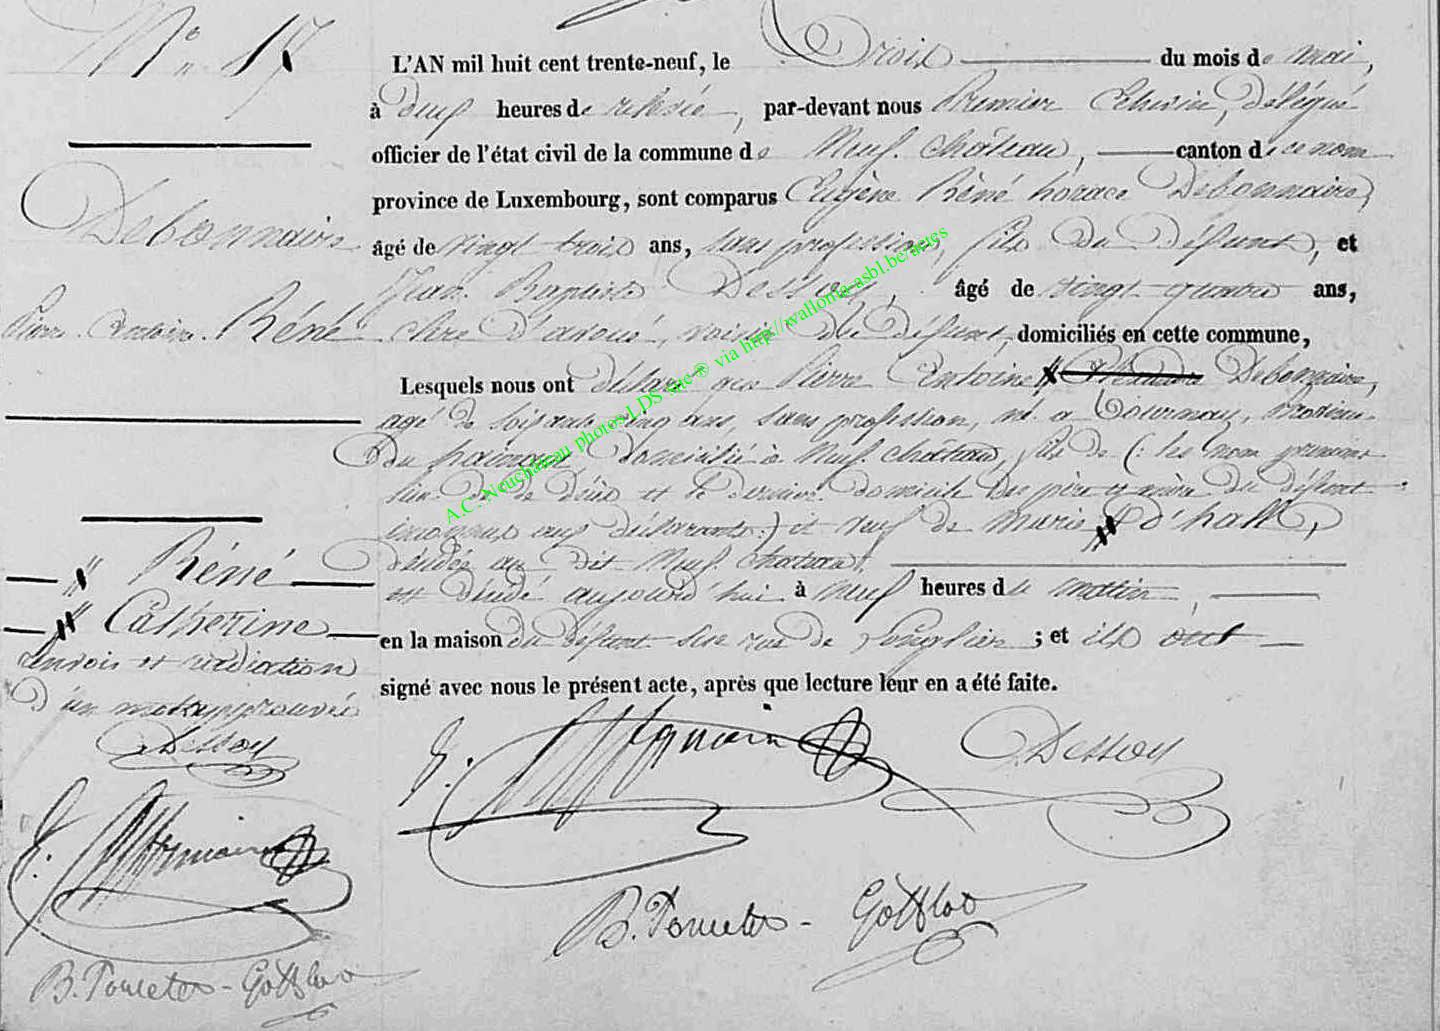 N° 17
L'AN mil huit cent trente-neuf, le Trois du mois de mai,
à deux heures de relevée, par-devant nous Premier Echevin, délégué
officier de l'état civil de la commune de Neuf-château, canton de ce nom
province de Luxembourg, sont comparus Eugène Réné horace Debonnaire,
âgé de vingt trois ans, sans profession, fils du défunt, et
Jean Baptiste Dessoy, âgé de vingt-quatre ans,
clerc d'avoué, voisin du défunt, domiciliés en cette commune,
Lesquels nous ont déclaré que Pierre Antoine // Debonnaire,
agé de soixante cinq ans, sans profession, né a Tournay, province
du hainaut domicilié à Neufchateau, fils de (: les nom prenoms
lieu de décès et le dernier domicile des père et mère du défunt
inconnus aux déclarants :) et veuf de Marie # d'hall,
décédée au dit Neufchateau.
est décédé aujourd'hui à Neuf heures du matin,
en la maison du défunt sise rue de ; et ils ont
signé avec nous le présent acte, après que lecture leur en a été faite.
Debonnaire
Pierre Antoine Réné
// Réné
# Catherine
renvois et radiation
d'un mot approuvés
Dessoy
E.
B. - Gottslao
E. Dessoy
B. - Gottslao
A.C. Neuchateau photos LDS site ® via http://wallonia-asbl.be/actes